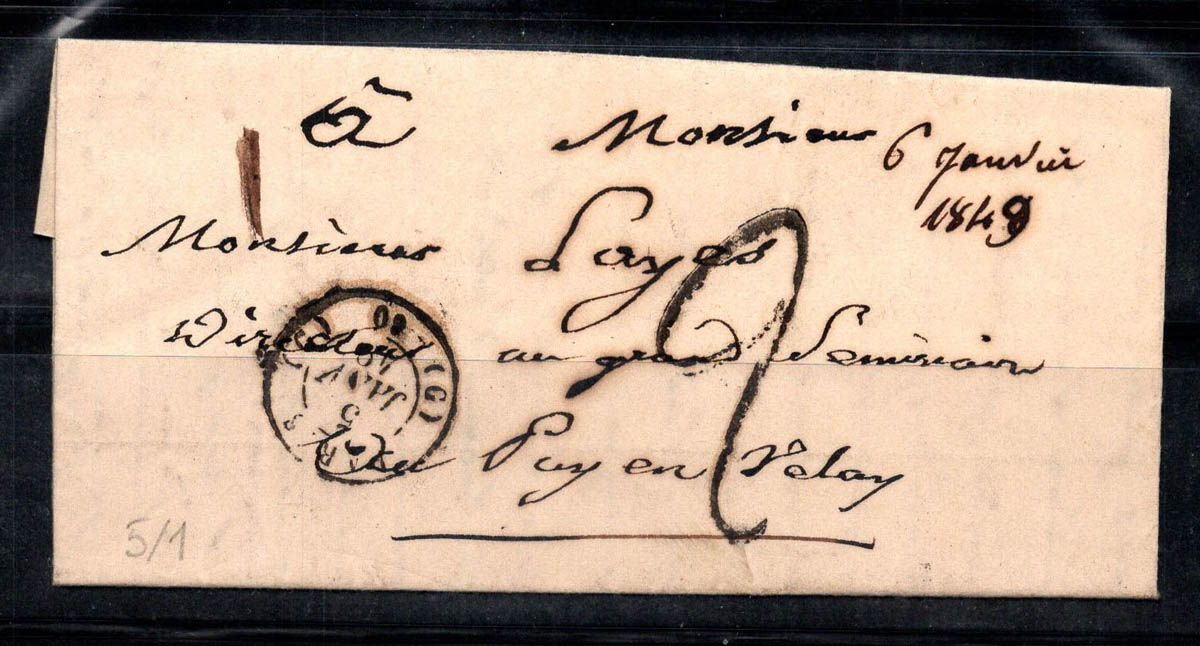 à Monsieur
6 Janvier
1849
Monsieur Layes
Directeur au grand Séminaire
du Puy en Velay
2
60
(G)
5
JANV
5/1